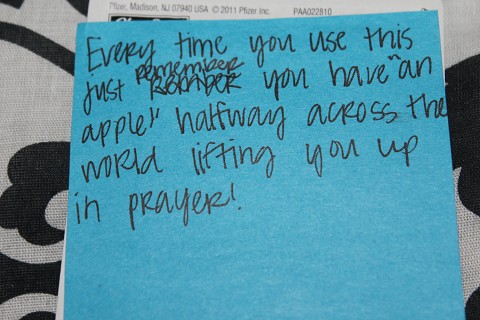 Pfizer, Madison, NJ 07940 USA © 2011 Pfizer Inc. PAA022810
Every time you use this
remember
just Rember you have "an
apple" halfway across the
world lifting you up
in prayer!